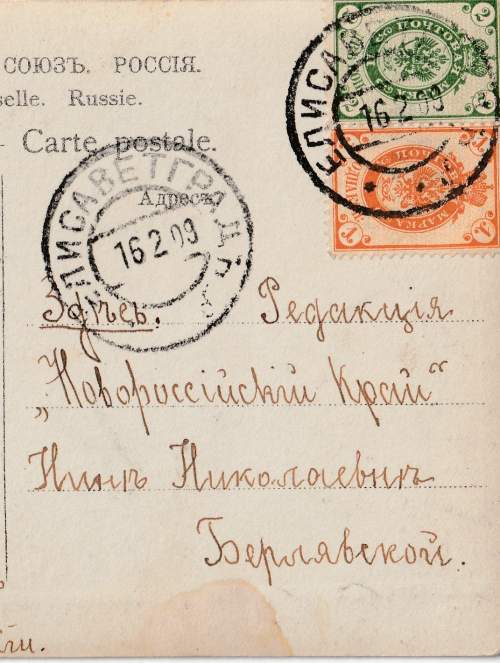 СОЮЗЪ. РОССІЯ.
selle. Russie.
Carte postale.
ЕЛИСАВЕТГРАДЪ
16 2 09
ЕЛИСАВЕ
16 2 09
2 2
ПОЧТОВАЯ
1 1
МАРКА
Адресъ.
Здѣсь. Редакція
„Новороссійскій Край“
Нинѣ Николаевнѣ
Берлявской.